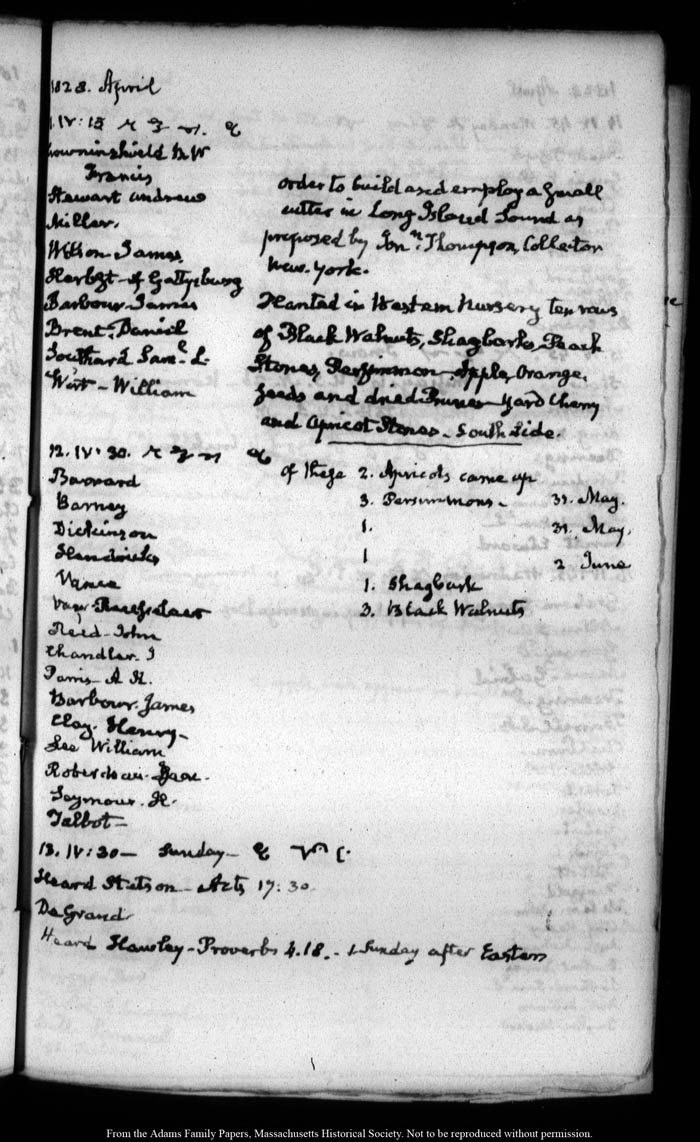 1828. April
11. IV:15
Crowninshield B. W
Francis
Stewart Andrew
Miller.
Wilson James.
Herbst of Gettysburg
Barbour James
Brent. Daniel
Southard Sam.l L.
Wirt - William
order to build and employ a small
cutter in Long Island Sound as
proposed by Jon.n Thompson, Collector
New-York.
Planted in Western Nursery ten rows
of Black Walnuts, Shagbarks, Peach
Stones, Persimmon, Apple, Orange,
seeds and dried Prunes - Yard Cherry
and Apricot Stones - South Side.
12. IV:30.
of these 2. Apricots came up
3. Persimmons - 31. May.
1. 31. May.
1 2 June
1. Shagbark
3. Black Walnuts
Barnard
Barney
Dickinson
Hendricks
Vance
Van Rensselaer
Reed - John
Chandler. J
Parris - A. K.
Barbour. James
Clay. Henry -
Lee William
Roberdeau. Isaac.
Seymour. H.
Talbot -
13. IV:30 - Sunday -
Heard Stetson - Acts 17:30.
De Grand
Heard Hawley - Proverbs 4.18. - 1 Sunday after Easter
From the Adams Family Papers, Massachusetts Historical Society. Not to be reproduced without permission.